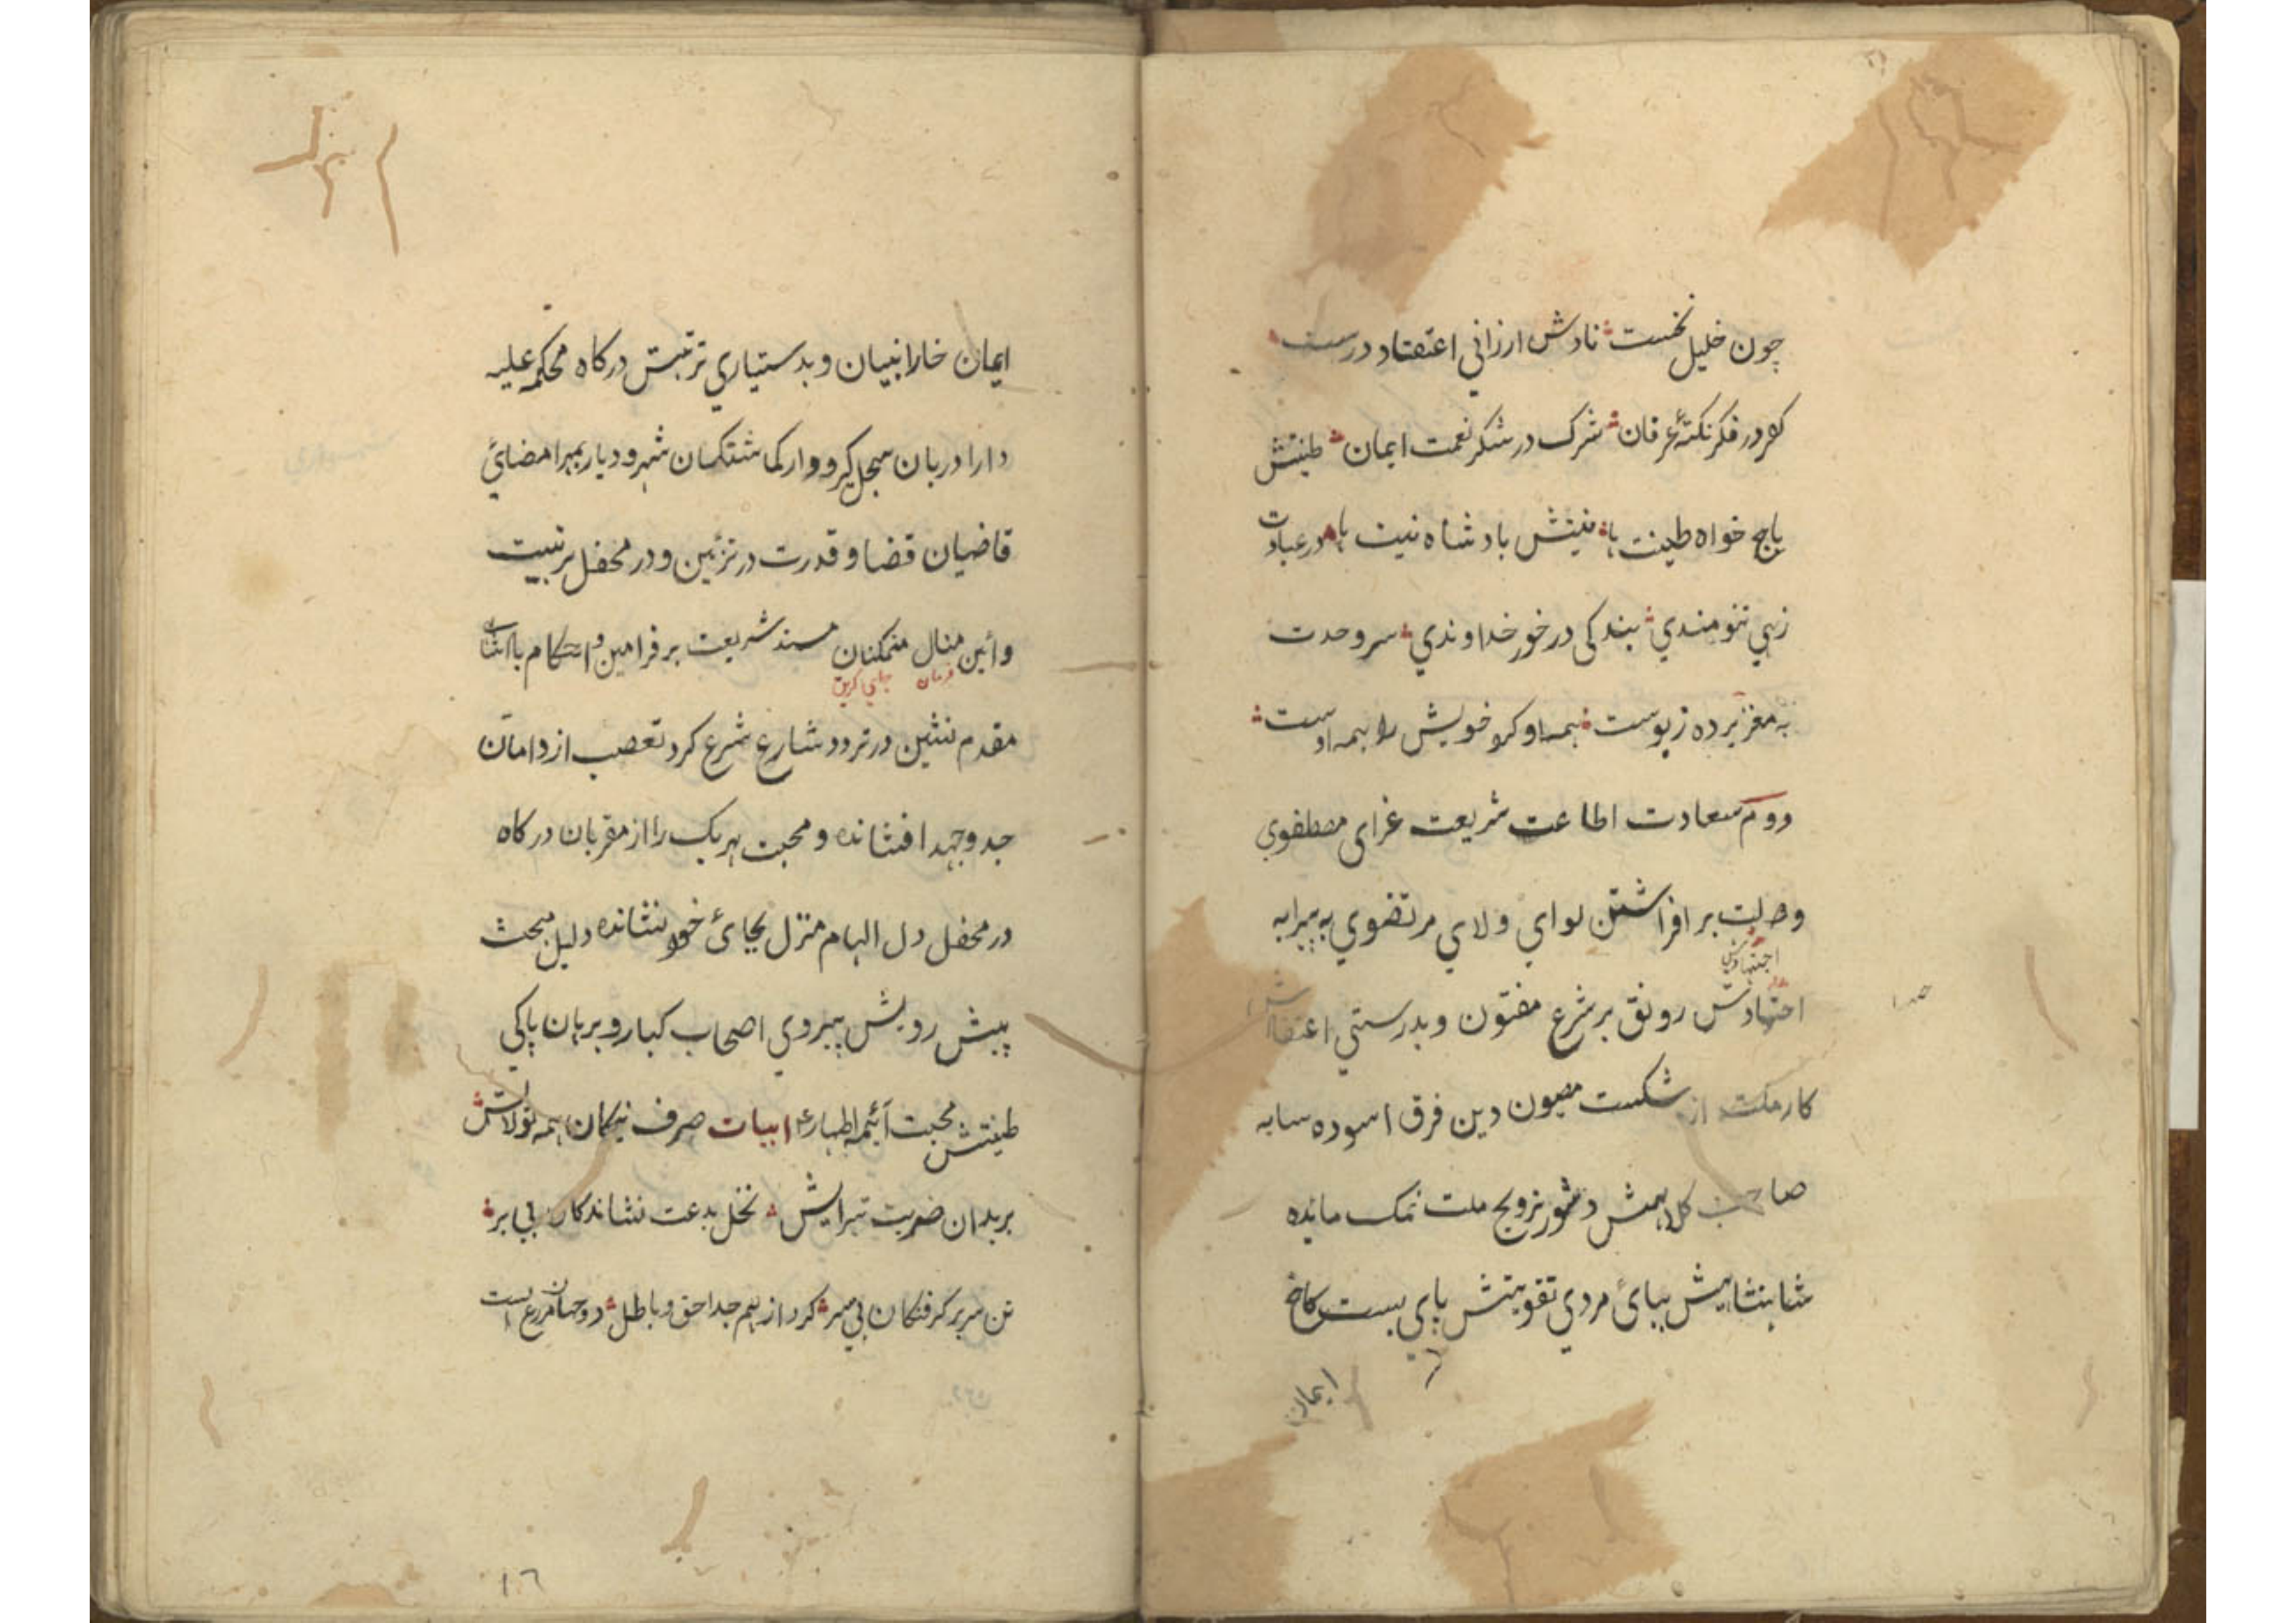 چون خلیل نخست نادش ارزانی اعتقاد درست
کرد در فکر نکتهٔ عرفان شرک در شکر نعمت ایمان طینتش
باج خواه طینت ها نیتش بادشاه نیت ها در عبادت
زهی تنومندی بندکی در خور خداوندی سر وحدت
به مغز برده ز پوست همه او کرد خویش را همه اوست
دوم سعادت اطاعت شریعت غرای مصطفوی
بر افراشتن لوای ولای مرتضوی به پیرایه
اجتهادش رونق بر شرع مفتون و بدرستی اعتقادش
کار ملت از شکست مصون دین فرق اسوده سایه
صاحب کلاهیش و شور ترویج ملت نمک مانده
شاهنشاهیش بپائ مردی تقویتش پای بست کاخ
ایمان
ایمان خارا بنیان و بدستیاری تربیتش درکاه محکمه علیه
دارا دربان سجل کیر و دار کماشتکان شهر و دیار بمهر امضائ
قاضیان قضا و قدرت در تزئین و در محفل تربیت
وائین منال متمکنان مسند شریعت بر فرامین و احکام با
فرمان
مقدم نشین در تردد شارع شرع کرد تعصب از دامان
جد و جهد افشانده و محبت هریک را از مقربان درکاه
در محفل دل الهام منزل بجائ خود نشانده دلیل مبحث
پیش رویش پیروی اصحاب کبار و برهان پاکی
طینتش محبت آئیمه اطهار ابیات صرف نیکان همه تولایش
بر بدان ضربت تبرایش نخل بدعت نشاندکان بی بر
تن سر بر کرفتکان بی سر کرد از هم جدا حق و باطل
١٦